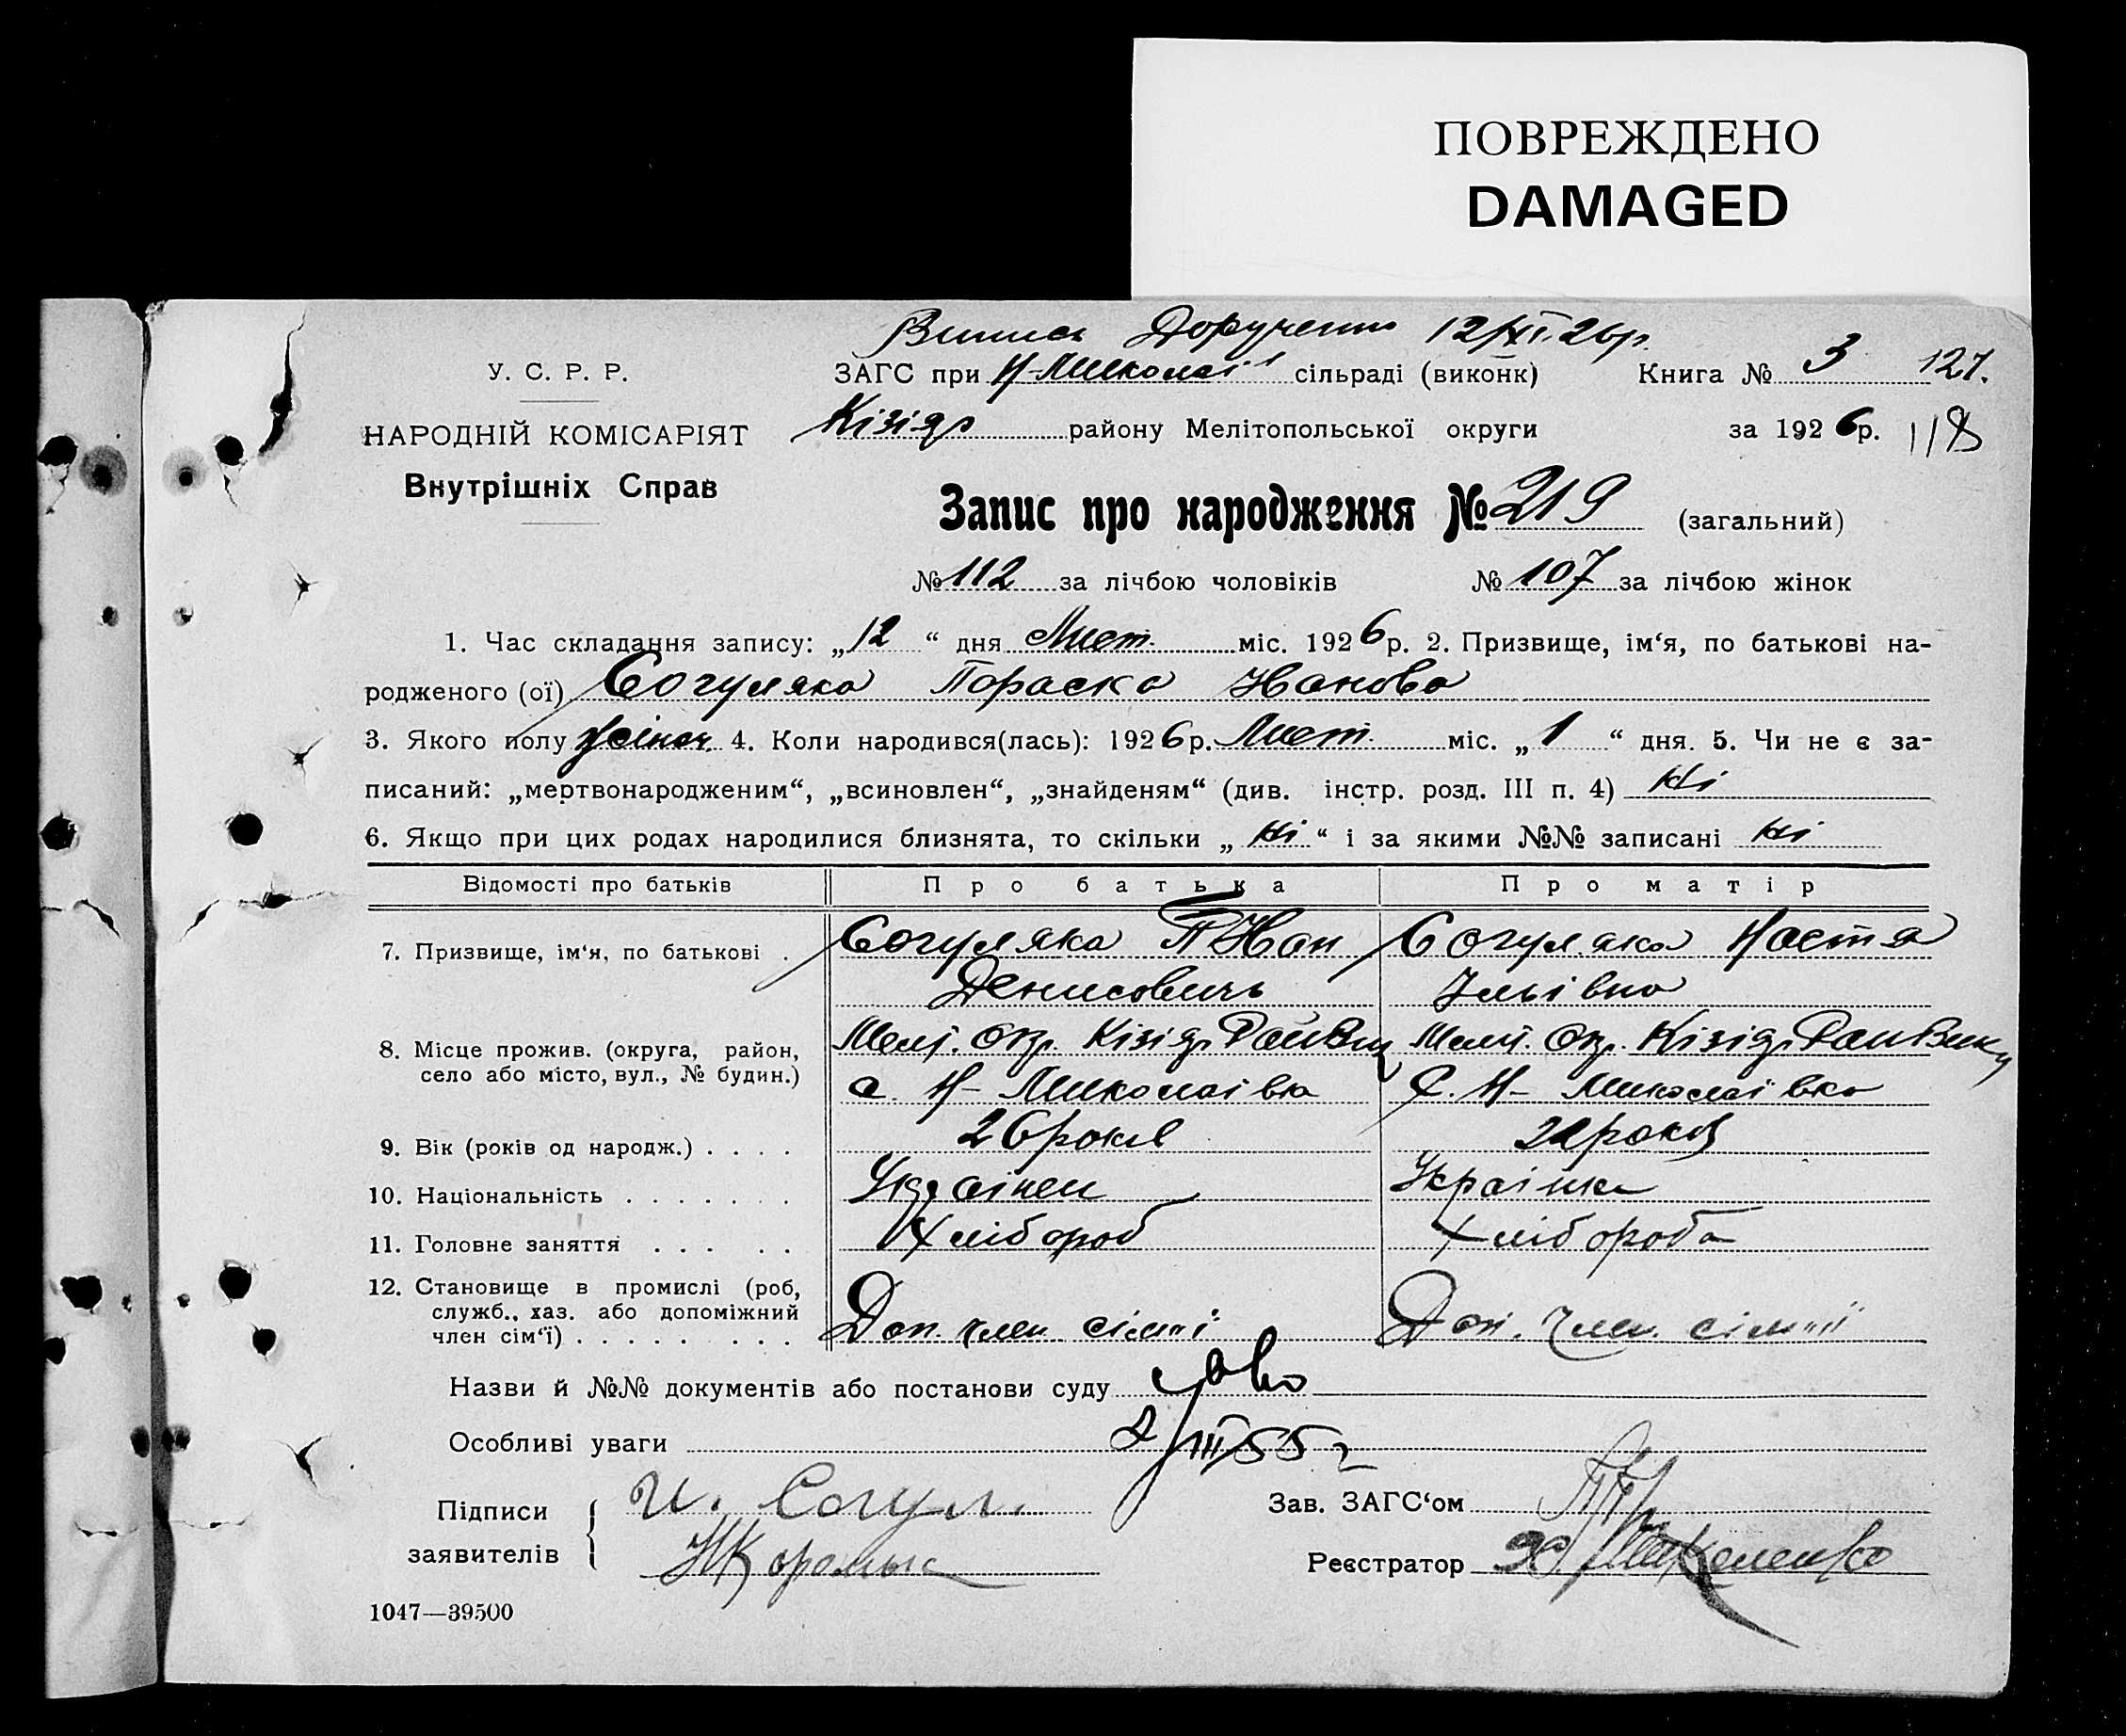 ПОВРЕЖДЕНО
DAMAGED
Випись Доручено 12/XI.26р.
У. С. Р. Р.
ЗАГС при Н-Миколаї сільраді (виконк) Книга № 3 127.
НАРОДНІЙ КОМІСАРІЯТ
Кізіяр району Мелітопольської округи за 1926р. 118
Внутрішніх Справ
Запис про народження № 219 (загальний)
№ 112 за лічбою чоловіків № 107 за лічбою жінок
1. Час складання запису: „12“ дня Лист. міс. 1926р. 2. Призвище, ім‘я, по батькові на-
родженого (ої) Согуляка Параска Иванова
3. Якого полу жіноч. 4. Коли народився(лась): 1926р. Лист. міс. „1“ дня. 5. Чи не є за-
писаний: „мертвонародженим“, „всиновлен“, „знайденям“ (див. інстр. розд. III п. 4) Ні
6. Якщо при цих родах народилися близнята, то скільки „Ні“ і за якими №№ записані Ні
Відомості про батьків Про батька Про матір
7. Призвище, ім‘я, по батькові . Согуляка Иван Согуляка Настя
Денисовичь Ільівна
8. Місце прожив. (округа, район, село або місто, вул., № будин.) Меліт. Окр. Кізіяр. Меліт. Окр. Кізіяр.
с. Н-Миколаівка С. Н-Миколаівка
9. Вік (років од народж.) . . . . 26 років років
10. Національність . . . . . . . Українец Українка
11. Головне заняття . . . . . Хлібороб Хлібороба
12. Становище в промислі (роб, служб., хаз. або допоміжний член сім‘ї) . . . . . . . . . Доп. член сімьї Доп. Член. сімьії
Назви й №№ документів або постанови суду
Особливі уваги 2/III/55г
Підписи заявителів { И. Согул.
Зав. ЗАГС‘ом
Реєстратор
1047—39500